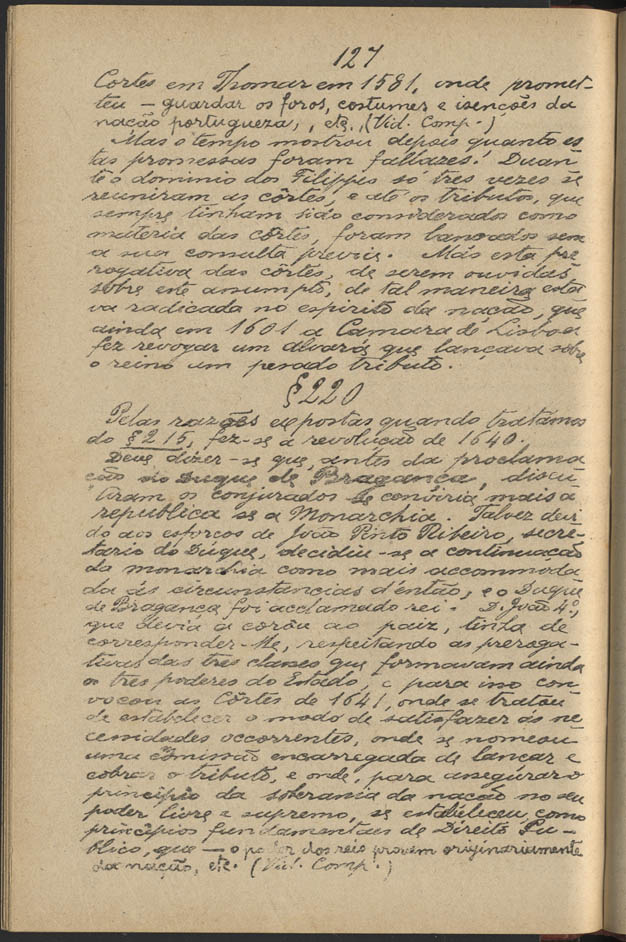 127
Côrtes em Thomar em 1581, onde promet-
teu — guardar os foros, costumes e isenções da
nação portugueza, etc. (Vid. Comp.)
Mas o tempo mostrou depois quanto es
tas promessas foram fallazes! Duan
te o dominio dos Filippes só tres vezes se
reuniram as côrtes, e até os tributos, que
sempre tinham sido considerados como
materia das côrtes, foram lançados sem
a sua consulta previa. Mas esta pre
rogativa das côrtes, de serem ouvidas
sôbre este assumpto, de tal maneira esta
va radicada no espirito da nação, que
ainda em 1601 a Camara de Lisboa
fez revogar um alvará que lançava sôbre
o reino um pesado tributo.
§ 220
Pelas razões expostas quando tratámos
do § 215, fez-se a revolução de 1640.
Deve dizer-se que, antes da proclama
ção do Duque de Bragança, discu
tiram os conjurados se conviria mais a
republica se a Monarchia. Talvez devi
do aos esforços de João Pinto Ribeiro, secre-
tario do Duque, decidiu-se a continuação
da monarchia como mais accommoda
da ás circumstancias d'então, e o Duque
de Bragança foi acclamado rei. D. João 4º,
que devia a corôa ao paiz, tinha de
corresponder-lhe, respeitando as preroga-
tivas das tres classes que formavam ainda
os tres poderes do Estado, e para isso con
vocou as Côrtes de 1641, onde se tratou
de estabelecer o modo de satisfazer ás ne
cessidades occorrentes, onde se nomeou
uma comissão encarregada de lançar e
cobrar o tributo, e onde, para assegurar o
principio da soberania da nação no seu
poder livre e supremo, se estabeleceu como
principios fundamentaes de Direito Pu-
blico, que — o poder dos reis provem originariamente
da nação, etc. (Vid. Comp.)